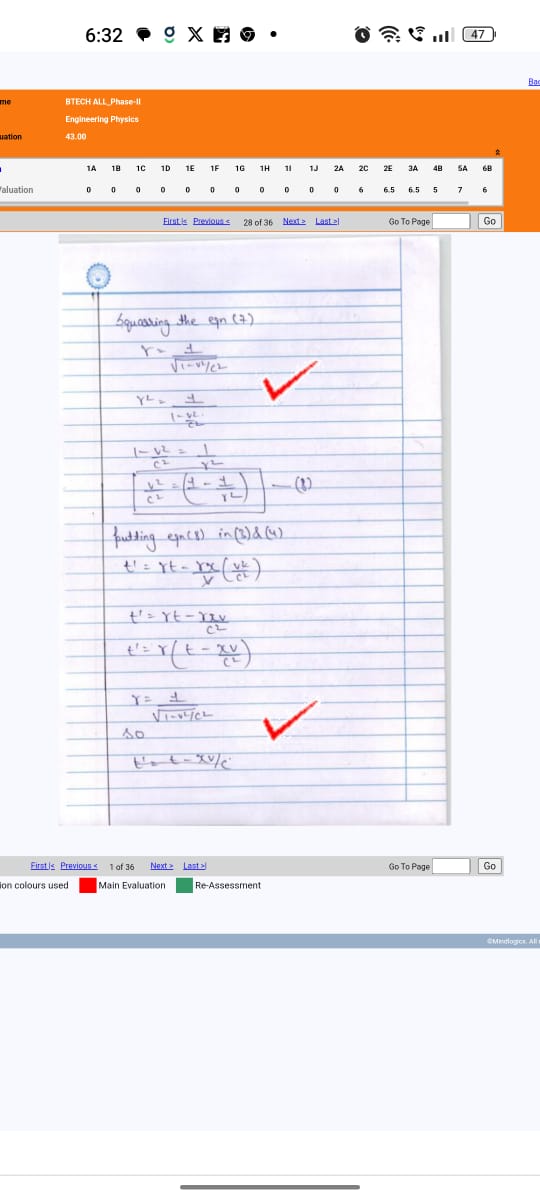 6:32
47
Bac
me
BTECH ALL_Phase-II
Engineering Physics
uation
43.00
1A 1B 1C 1D 1E 1F 1G 1H 1I 1J 2A 2C 2E 3A 4B 5A 6B
aluation 0 0 0 0 0 0 0 0 0 0 0 6 6.5 6.5 5 7 6
First |< Previous < 28 of 36 Next > Last >| Go To Page Go
Squaring the eqn (7)
γ = 1/√1-v²/c²
γ² = 1/1-v²/c²
1 - v²/c² = 1/γ²
v²/c² = (1 - 1/γ²) — (8)
putting eqn(8) in (3) & (4)
t' = γt - γx/v (v²/c²)
t' = γt - γxv/c²
t' = γ(t - xv/c²)
γ = 1/√1-v²/c²
so
t' = t - xv/c
First |< Previous < 1 of 36 Next > Last >| Go To Page Go
ion colours used Main Evaluation Re-Assessment
©Mindlogicx. All